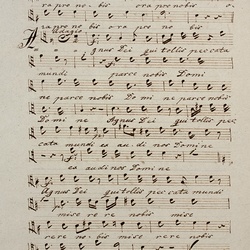 ra pro no- bis ora pro no- bis o-
ra pro no bis ora pro no bis
Adagio
Agnus Dei qui tollis peccata
mundi parce nobis Domi
ne parce nobis Domi ne parce nobis
Domi ne Agnus Dei qui tollis pec
cata mundi ex au- di nos Domine
ex audi nos Domine
Agnus Dei qui tollis peccata mundi
mise re re nobis mise
rere nobis mise re re nobis